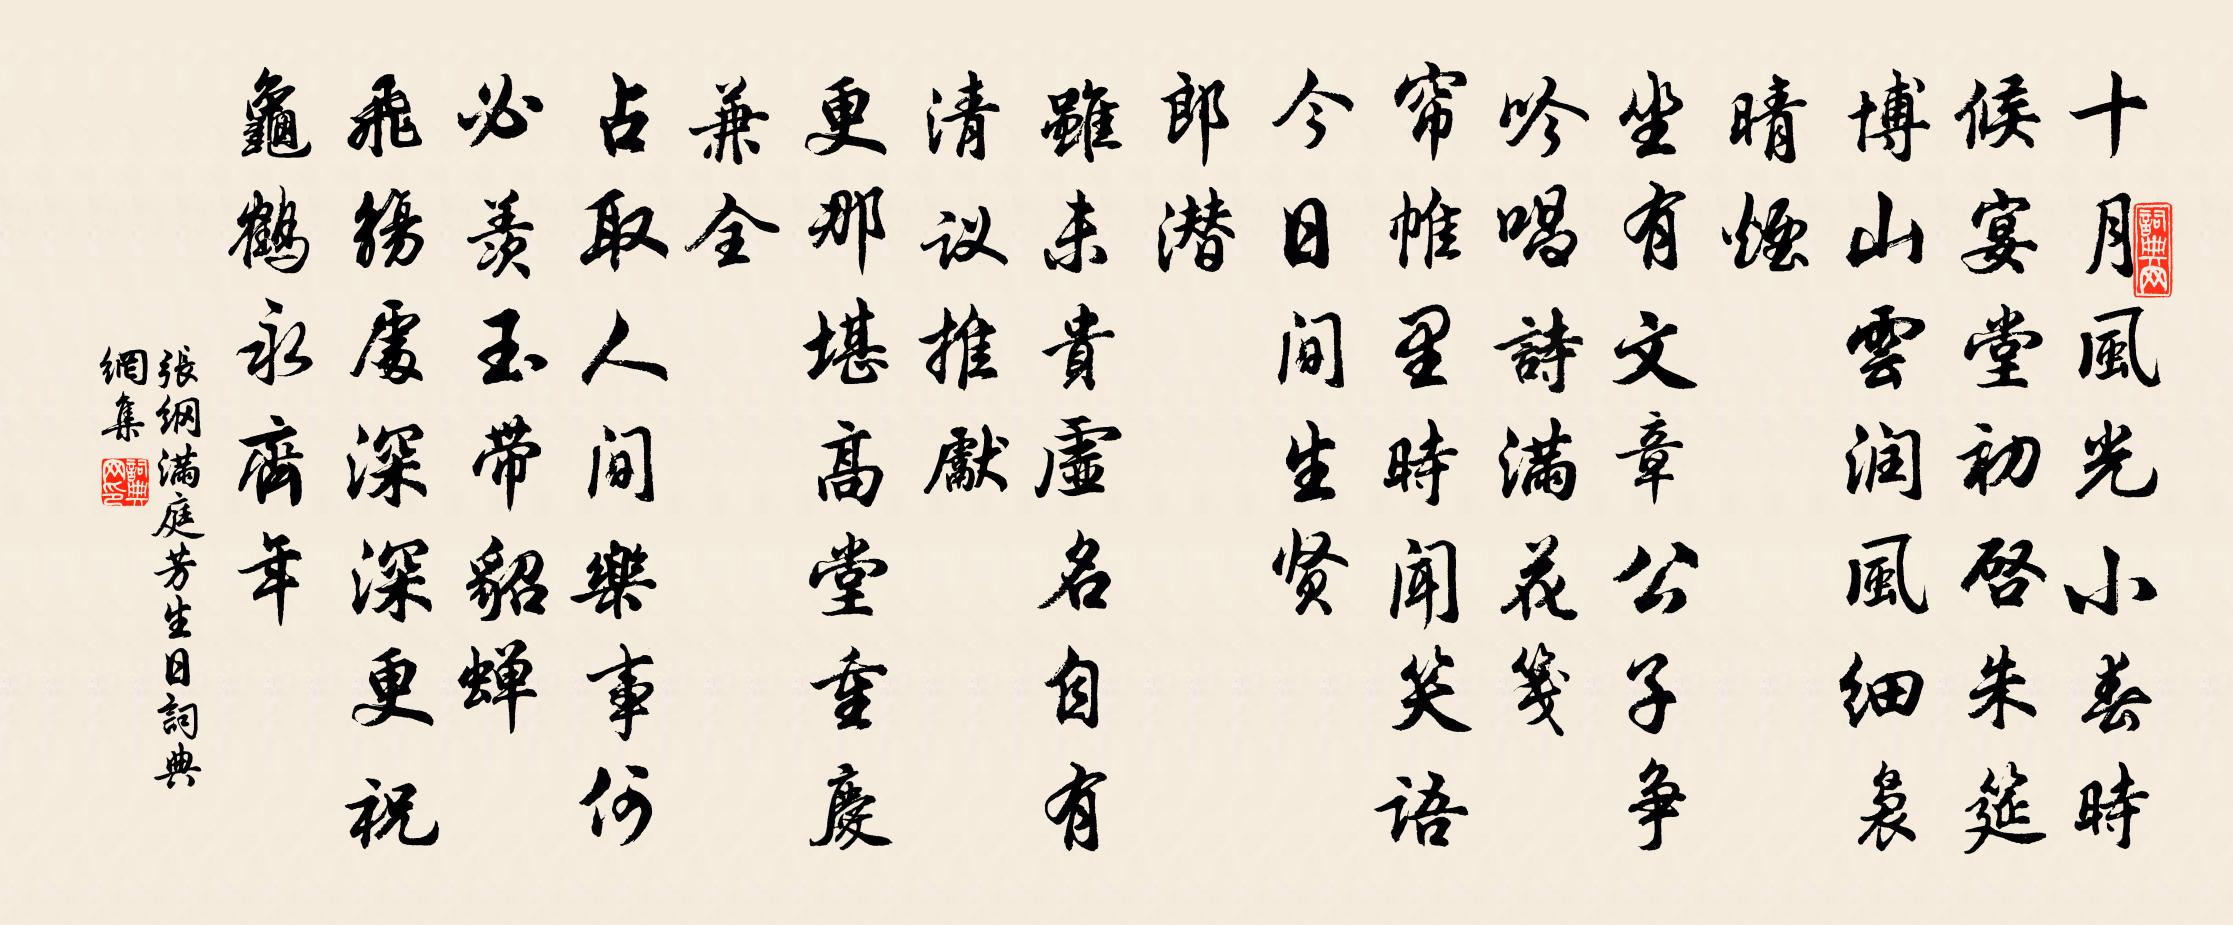 十月風光小春時
候宴堂初啓朱筵
博山雲润風細裊
晴煙
坐有文章公子争
吟唱詩满花箋
帘帷里時闻笑语
今日间生贤
郎潜
雖未貴虛名自有
清议推獻
更那堪高堂重慶
兼全
占取人间樂事何
必羡玉带貂蝉
飛觴處深深更祝
龜鶴永齊年
張纲满庭芳生日詞典
網集
詞典网
詞典网印